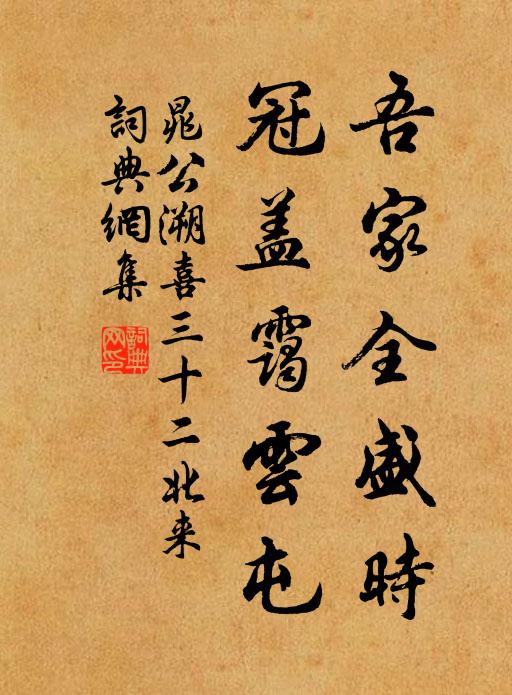 吾家全盛時
冠盖靄雲屯
晁公溯喜三十二北来
詞典網集
詞典网印